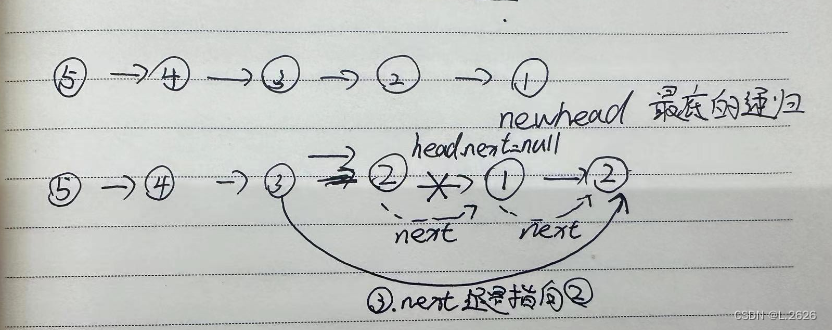 ⑤ → ④ → ③ → ② → ①
newhead 最底的递归
head.next=null
⑤ → ④ → ③ → ② → ① → ②
next next
③.next 还是指向②
CSDN @L.2626